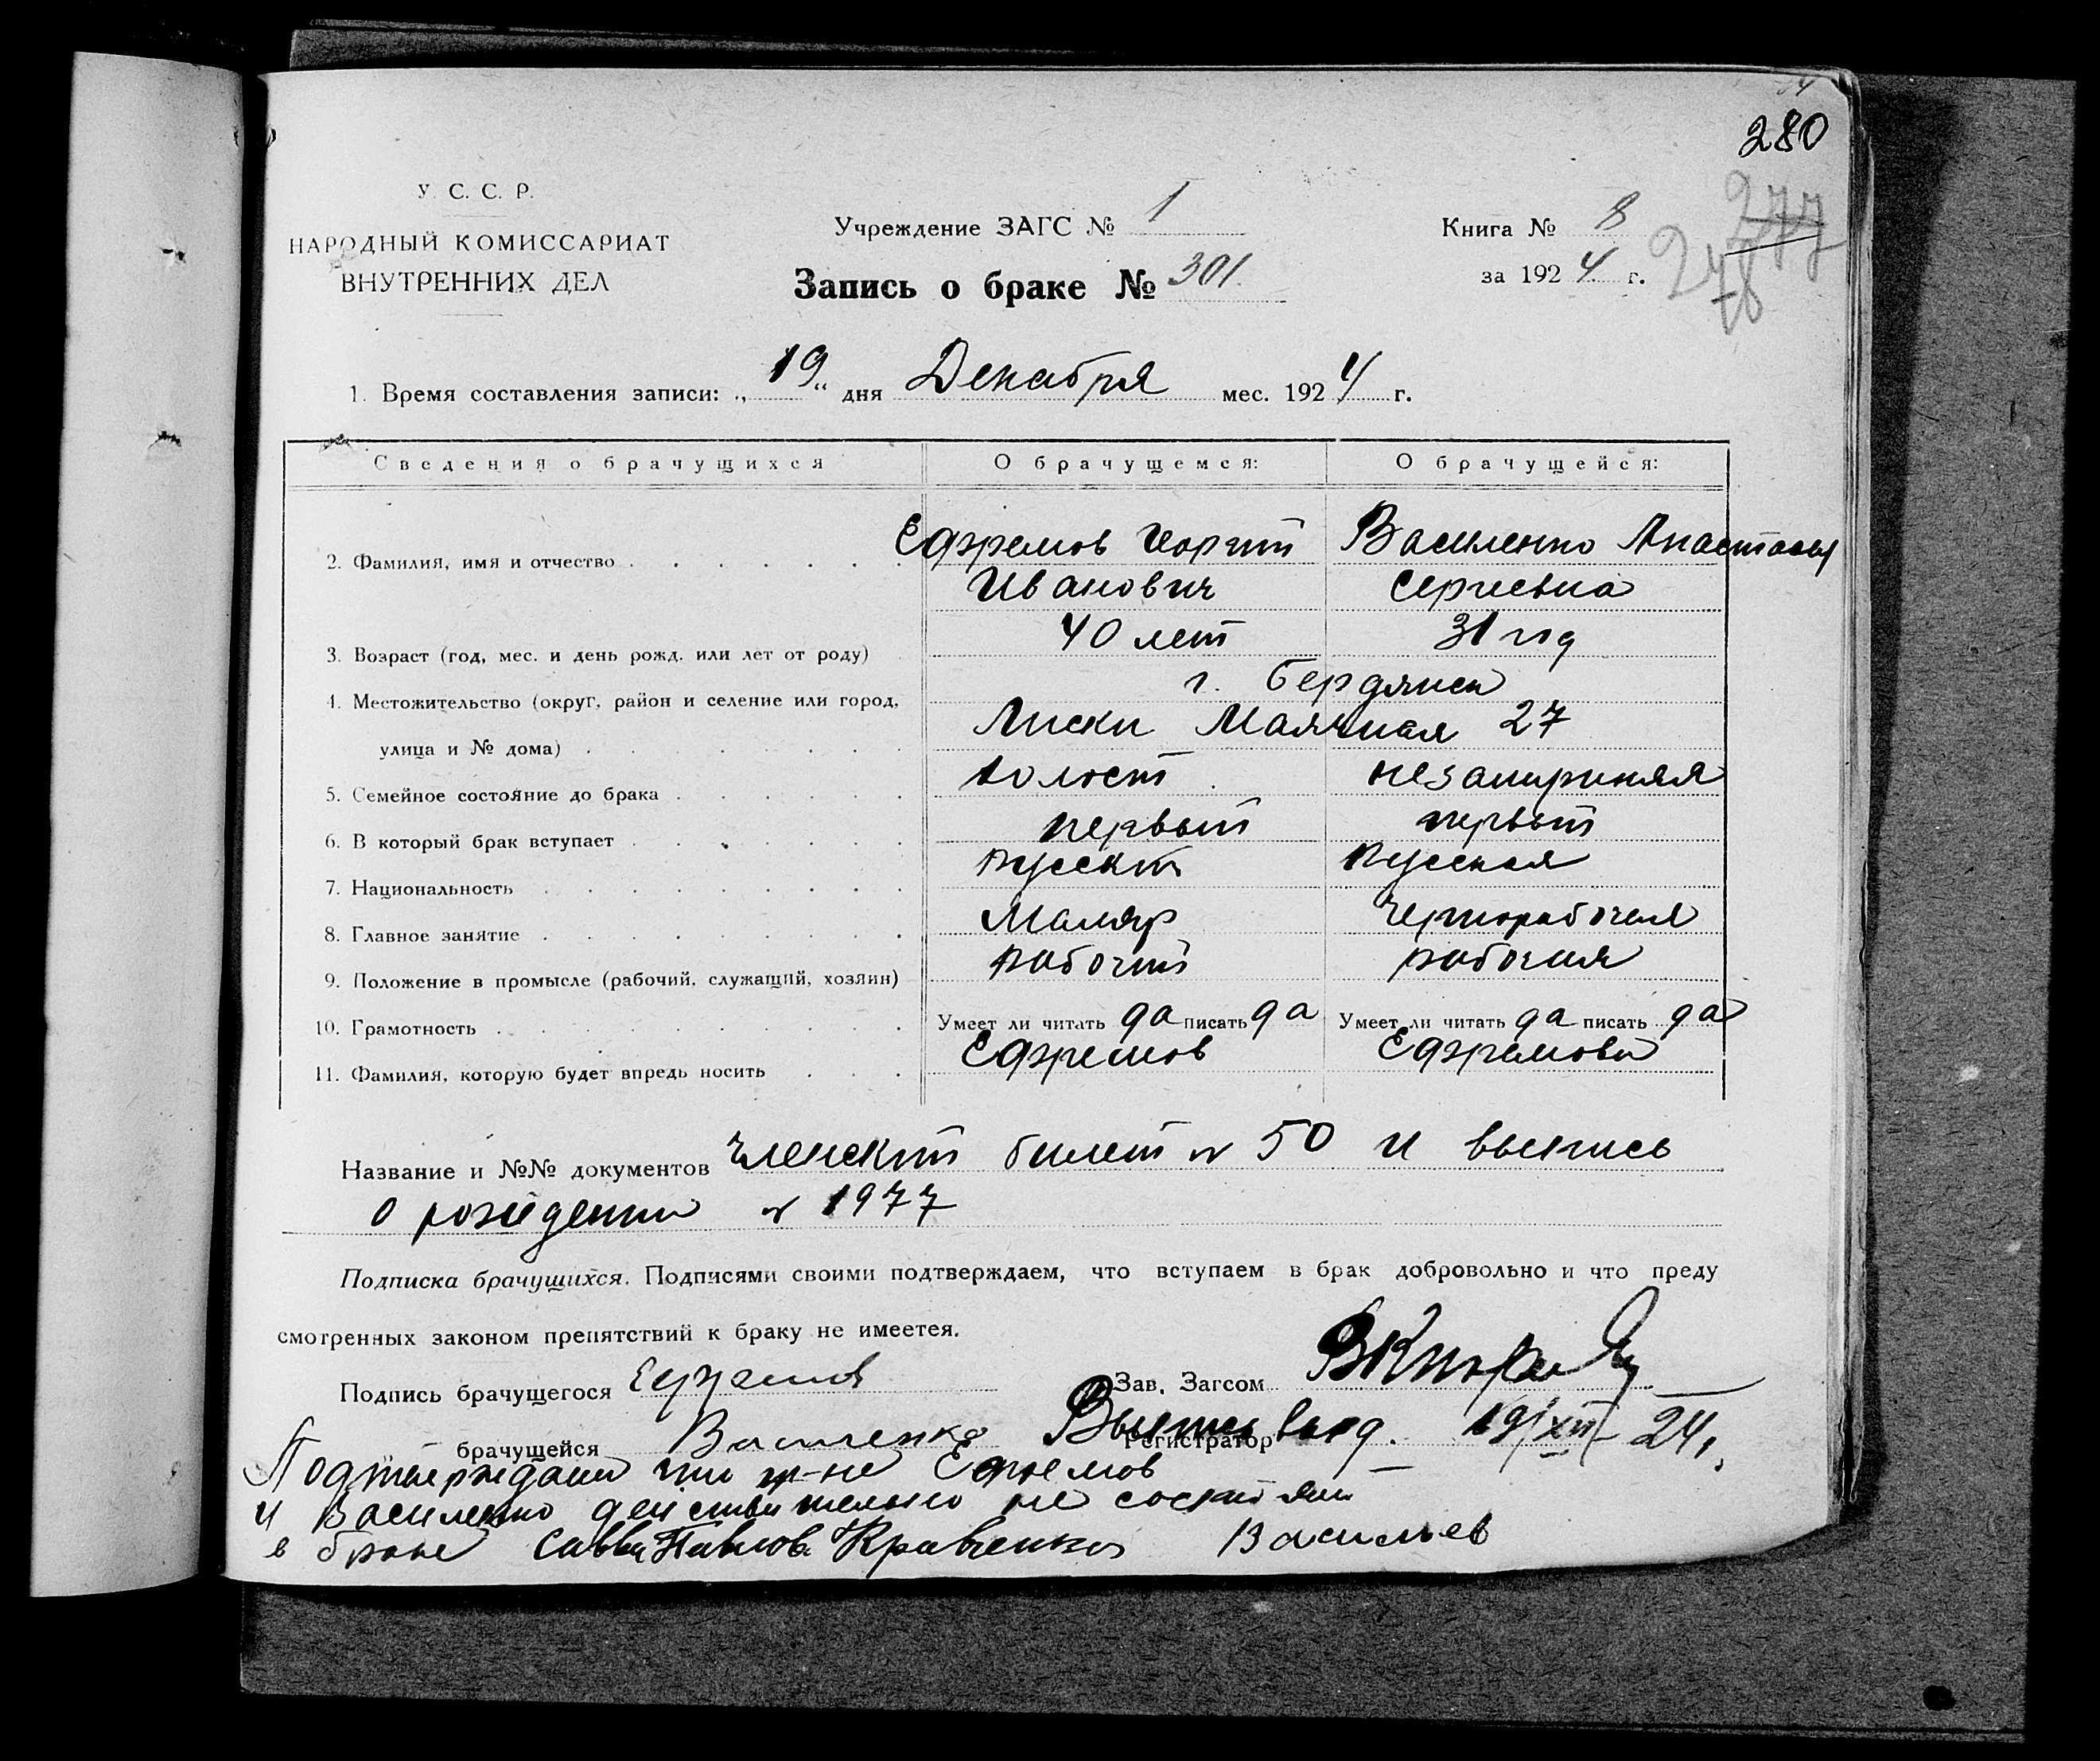 280
277
278
У. С. С. Р.
НАРОДНЫЙ КОМИССАРИАТ
ВНУТРЕННИХ ДЕЛ
Учреждение ЗАГС № 1
Запись о браке № 301
Книга № 8
за 1924 г.
1. Время составления записи: „19“ дня Декабря мес. 1924 г.
Сведения о брачущихся О брачущемся: О брачущейся:
2. Фамилия, имя и отчество Ефремов Георгий Василенко Анастасия
Иванович Сергиевна
3. Возраст (год, мес. и день рожд. или лет от роду) 40 лет 31 год
4. Местожительство (округ, район и селение или город, г. Бердянск
улица и № дома) Лиски Маячная 27
5. Семейное состояние до брака холост незамужняя
6. В который брак вступает первый первый
7. Национальность Русский Русская
8. Главное занятие Маляр Чернорабочая
9. Положение в промысле (рабочий, служащий, хозяин) рабочий рабочая
10. Грамотность Умеет ли читать да писать да Умеет ли читать да писать да
11. Фамилия, которую будет впредь носить Ефремов Ефремова
Название и №№ документов членский билет № 50 и выпись
о рождении № 1977
Подписка брачущихся. Подписями своими подтверждаем, что вступаем в брак добровольно и что преду
смотренных законом препятствий к браку не имеется.
Подпись брачущегося Ефремов Зав. Загсом
брачущейся Василенко Регистратор Выпись выд. 19/XII-24 г.
Подтверждаем что гр-не Ефремов
и Василенко действительно не состояли
в браке Савва Павлов Кравченко Васильев